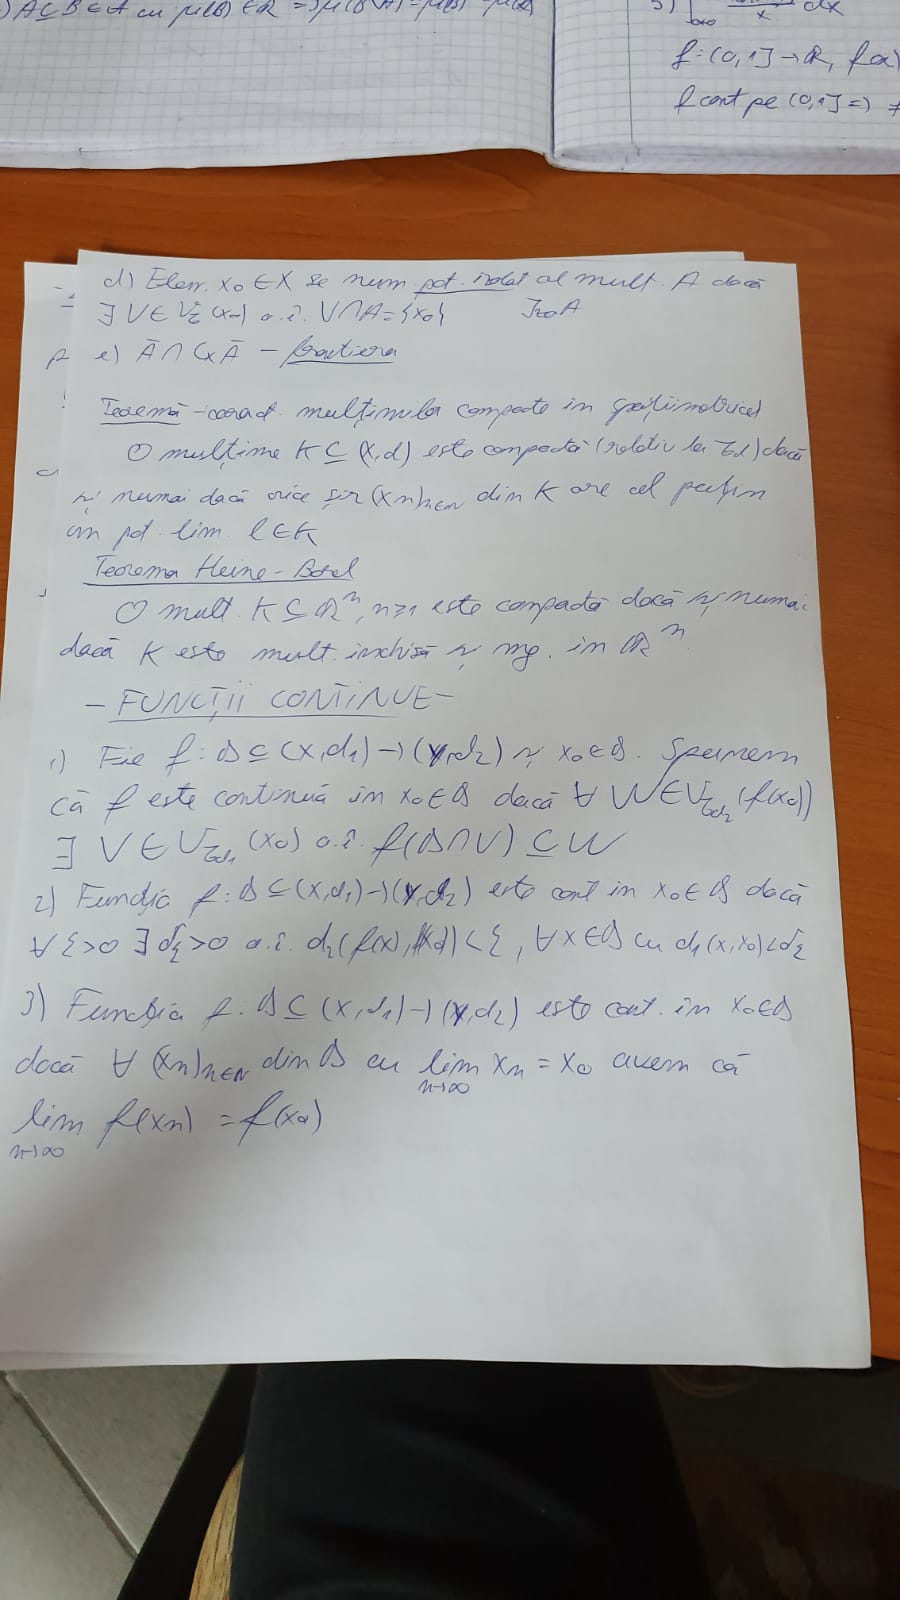 ) A⊆B∈A cu μ(B)∈R => μ(B\A)=μ(B)-μ(A)
5) ∫ dx
x
f:(0,1]→R, f(x)
f cont pe (0,1] =>
d) Elem. x₀∈X se num pct. izolat al mult. A dacă
∃ V∈V_τ(x₀) a.î. V∩A={x₀} IzoA
e) Ā∩CxĀ - frontiera
Teoremă - caract. mulțimilor compacte in spații metrice)
O mulțime K⊆(X,d) este compactă (relativ la τd) dacă
și numai dacă orice șir (xn)n∈N din K are cel puțin
un pct. lim. l∈K
Teorema Heine-Borel
O mult. K⊆Rⁿ, n≥1 este compactă dacă și numai
dacă K este mult. inchisă și mg. in Rⁿ
- FUNCȚII CONTINUE -
1) Fie f: D⊆(X,d₁)→(Y,d₂) și x₀∈D. Spunem
că f este continuă in x₀∈D dacă ∀ W∈V_τd₂(f(x₀))
∃ V∈V_τd₁(x₀) a.î. f(D∩V)⊆W
2) Funcția f: D⊆(X,d₁)→(Y,d₂) este cont in x₀∈D dacă
∀ε>0 ∃δε>0 a.î. d₂(f(x),f(x₀))<ε, ∀x∈D cu d₁(x,x₀)<δε
3) Funcția f: D⊆(X,d₁)→(Y,d₂) este cont. in x₀∈D
dacă ∀ (xn)n∈N din D cu lim xn = x₀ avem că
n→∞
lim f(xn) = f(x₀)
n→∞